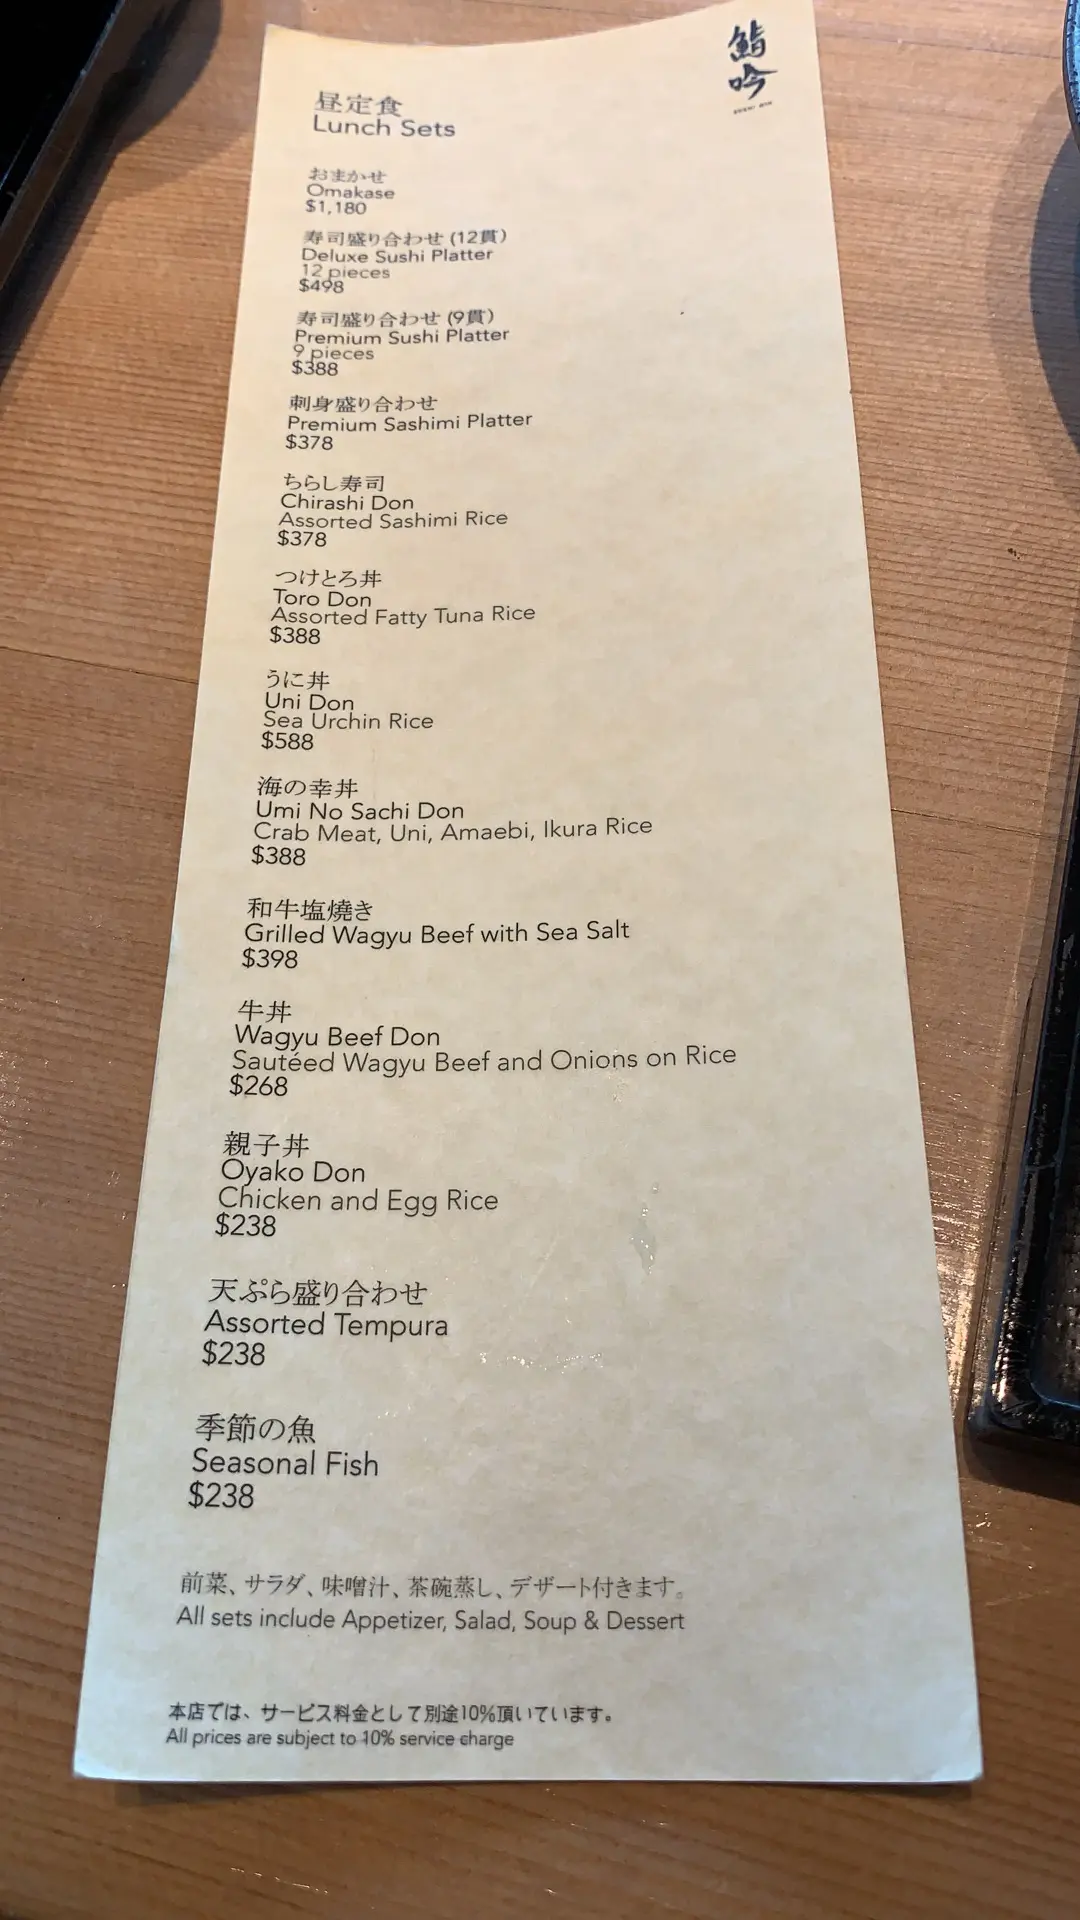 鮨
吟
昼定食
Lunch Sets
おまかせ
Omakase
$1,180
寿司盛り合わせ (12貫)
Deluxe Sushi Platter
12 pieces
$498
寿司盛り合わせ (9貫)
Premium Sushi Platter
9 pieces
$388
刺身盛り合わせ
Premium Sashimi Platter
$378
ちらし寿司
Chirashi Don
Assorted Sashimi Rice
$378
つけとろ丼
Toro Don
Assorted Fatty Tuna Rice
$388
うに丼
Uni Don
Sea Urchin Rice
$588
海の幸丼
Umi No Sachi Don
Crab Meat, Uni, Amaebi, Ikura Rice
$388
和牛塩焼き
Grilled Wagyu Beef with Sea Salt
$398
牛丼
Wagyu Beef Don
Sautéed Wagyu Beef and Onions on Rice
$268
親子丼
Oyako Don
Chicken and Egg Rice
$238
天ぷら盛り合わせ
Assorted Tempura
$238
季節の魚
Seasonal Fish
$238
前菜、サラダ、味噌汁、茶碗蒸し、デザート付きます。
All sets include Appetizer, Salad, Soup & Dessert
本店では、サービス料金として別途10%頂いています。
All prices are subject to 10% service charge